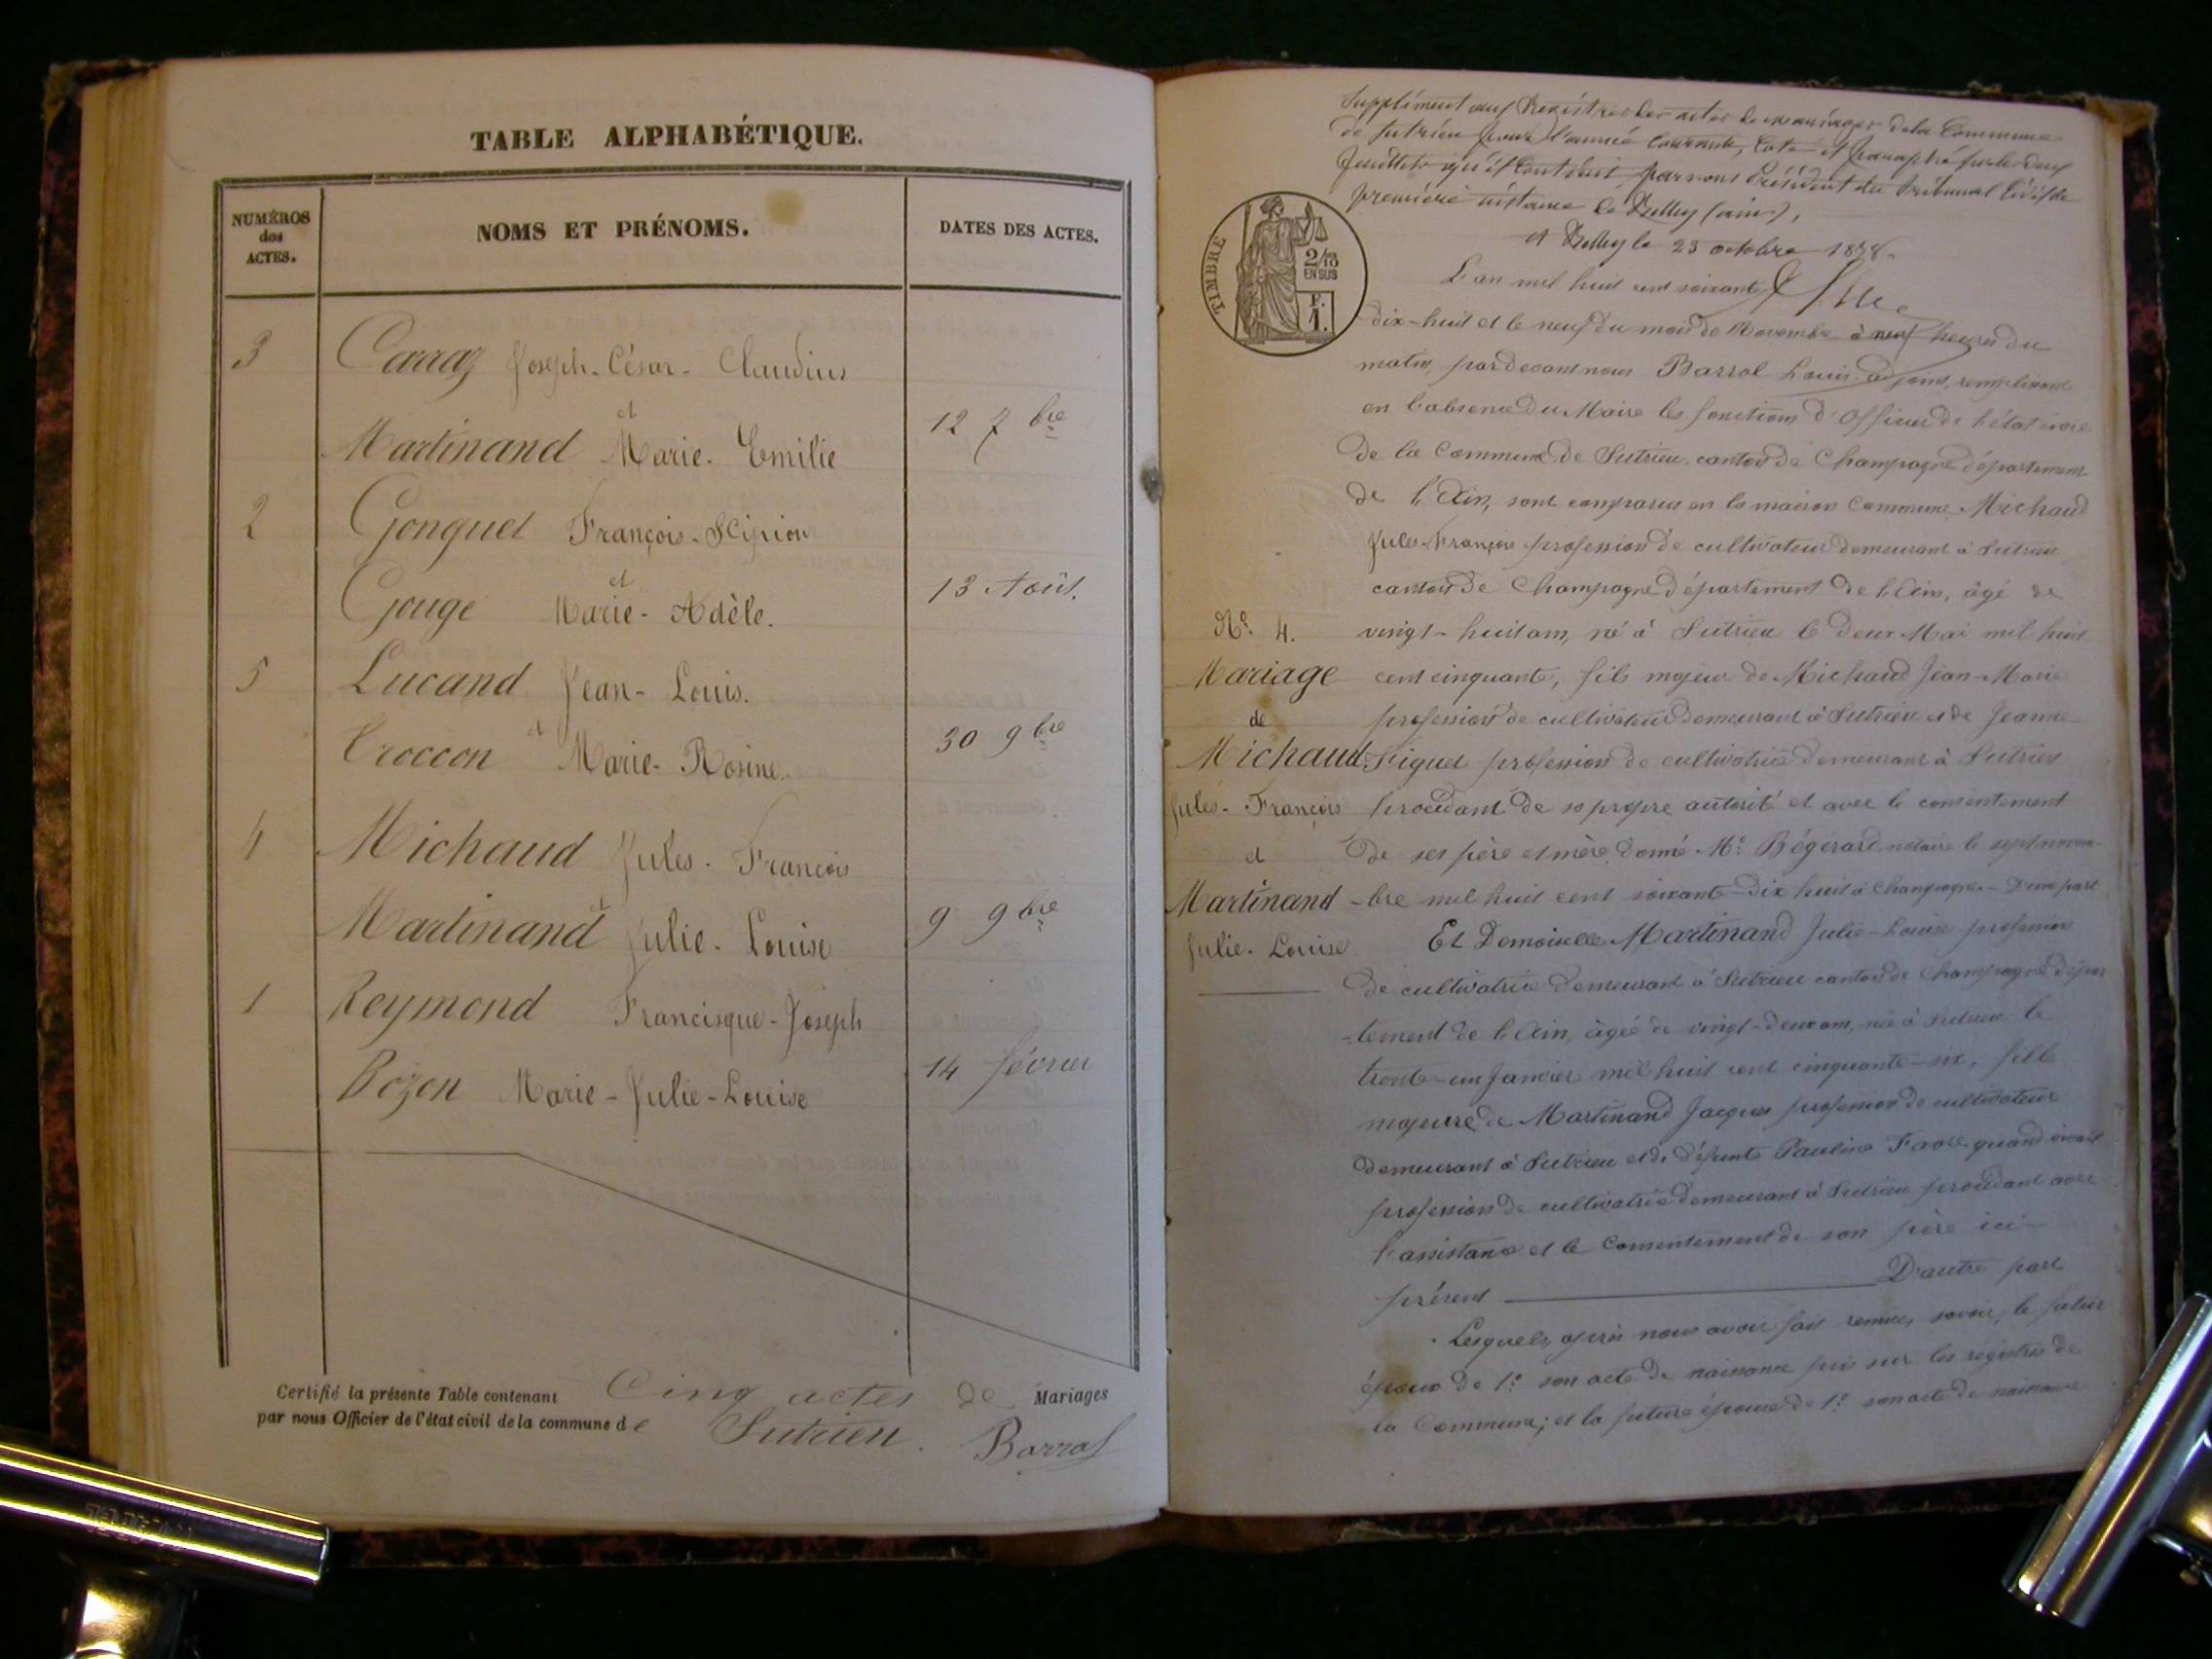 TABLE ALPHABÉTIQUE.
NUMÉROS
des
ACTES.
NOMS ET PRÉNOMS.
DATES DES ACTES.
3 Carraz Joseph-César-Claudius
et
Martinand Marie-Emilie 12 7bre
2 Gonguet François-Scipion
et
Gouge Marie-Adèle. 13 Août.
5 Lucand Jean-Louis.
et
Croccon Marie-Rosine. 30 9bre
4 Michaud Jules-François
et
Martinand Julie-Louise 9 9bre
1 Reymond Francisque-Joseph
Bozon Marie-Julie-Louise 14 février
Certifié la présente Table contenant Cinq actes de Mariages
par nous Officier de l'état civil de la commune de Sutrieu.
Barral
Supplément aux Registres des actes de mariages de la Commune
de Sutrieu pour l'année courante, coté et paraphé sur les deux
feuillets qu'il contient, par nous Président du Tribunal Civil de
première instance de Belley (ain),
A Belley le 23 octobre 1878.
TIMBRE
2/10
EN SUS
F.
1.
L'an mil huit cent soixante
dix-huit et le neuf du mois de Novembre à neuf heures du
matin, pardevant nous Barral Louis adjoint, remplissant
en l'absence du Maire les fonctions d'Officier de l'état civil
de la Commune de Sutrieu canton de Champagne département
de l'Ain, sont comparus en la maison Commune Michaud
Jules-François profession de cultivateur demeurant à Sutrieu
canton de Champagne département de l'Ain, âgé de
No. 4.
vingt-huit ans, né à Sutrieu le deux Mai mil huit
Mariage
cent cinquante, fils majeur de Michaud Jean-Marie
de
profession de cultivateur demeurant à Sutrieu et de Jeanne
Michaud
Figuet profession de cultivatrice demeurant à Sutrieu
Jules-François
procédant de sa propre autorité et avec le consentement
et
de ses père et mère, donné Me Bégérard notaire le sept novem-
Martinand
-bre mil huit cent soixante-dix huit à Champagne - D'une part
Julie-Louise
Et Demoiselle Martinand Julie-Louise profession
de cultivatrice demeurant à Sutrieu canton de Champagne dépar
-tement de l'Ain, âgée de vingt-deux ans, née à Sutrieu le
trente-un Janvier mil huit cent cinquante-six, fille
majeure de Martinand Jacques profession de cultivateur
demeurant à Sutrieu et de défunte Pauline Favre quand vivait
profession de cultivatrice demeurant à Sutrieu procédant avec
l'assistance et le Consentement de son père ici
présent D'autre part
Lesquels, après nous avoir fait remise, savoir; le futur
époux de 1º son acte de naissance pris sur les registres de
la Commune; et la future épouse de 1º son acte de naissance